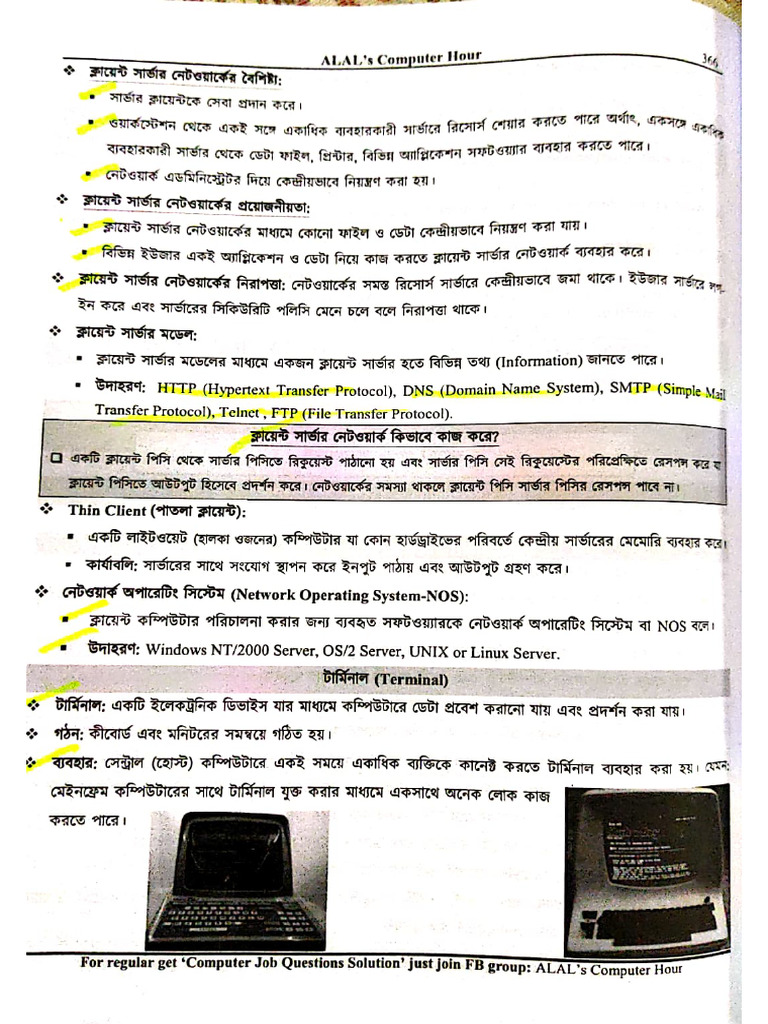 ALAL's Computer Hour 366
❖ ক্লায়েন্ট সার্ভার নেটওয়ার্কের বৈশিষ্ট্য:
▪ সার্ভার ক্লায়েন্টকে সেবা প্রদান করে।
▪ ওয়ার্কস্টেশন থেকে একই সঙ্গে একাধিক ব্যবহারকারী সার্ভারে রিসোর্স শেয়ার করতে পারে অর্থাৎ, একসঙ্গে একাধিক
ব্যবহারকারী সার্ভার থেকে ডেটা ফাইল, প্রিন্টার, বিভিন্ন অ্যাপ্লিকেশন সফটওয়্যার ব্যবহার করতে পারে।
▪ নেটওয়ার্ক এডমিনিস্ট্রেটর দিয়ে কেন্দ্রীয়ভাবে নিয়ন্ত্রণ করা হয়।
❖ ক্লায়েন্ট সার্ভার নেটওয়ার্কের প্রয়োজনীয়তা:
▪ ক্লায়েন্ট সার্ভার নেটওয়ার্কের মাধ্যমে কোনো ফাইল ও ডেটা কেন্দ্রীয়ভাবে নিয়ন্ত্রণ করা যায়।
▪ বিভিন্ন ইউজার একই অ্যাপ্লিকেশন ও ডেটা নিয়ে কাজ করতে ক্লায়েন্ট সার্ভার নেটওয়ার্ক ব্যবহার করে।
❖ ক্লায়েন্ট সার্ভার নেটওয়ার্কের নিরাপত্তা: নেটওয়ার্কের সমস্ত রিসোর্স সার্ভারে কেন্দ্রীয়ভাবে জমা থাকে। ইউজার সার্ভারে লগ-
ইন করে এবং সার্ভারের সিকিউরিটি পলিসি মেনে চলে বলে নিরাপত্তা থাকে।
❖ ক্লায়েন্ট সার্ভার মডেল:
▪ ক্লায়েন্ট সার্ভার মডেলের মাধ্যমে একজন ক্লায়েন্ট সার্ভার হতে বিভিন্ন তথ্য (Information) জানতে পারে।
▪ উদাহরণ: HTTP (Hypertext Transfer Protocol), DNS (Domain Name System), SMTP (Simple Mail
Transfer Protocol), Telnet , FTP (File Transfer Protocol).
ক্লায়েন্ট সার্ভার নেটওয়ার্ক কিভাবে কাজ করে?
❑ একটি ক্লায়েন্ট পিসি থেকে সার্ভার পিসিতে রিকুয়েস্ট পাঠানো হয় এবং সার্ভার পিসি সেই রিকুয়েস্টের পরিপ্রেক্ষিতে রেসপন্স করে যা
ক্লায়েন্ট পিসিতে আউটপুট হিসেবে প্রদর্শন করে। নেটওয়ার্কের সমস্যা থাকলে ক্লায়েন্ট পিসি সার্ভার পিসির রেসপন্স পাবে না।
❖ Thin Client (পাতলা ক্লায়েন্ট):
▪ একটি লাইটওয়েট (হালকা ওজনের) কম্পিউটার যা কোন হার্ডড্রাইভের পরিবর্তে কেন্দ্রীয় সার্ভারের মেমোরি ব্যবহার করে।
▪ কার্যাবলি: সার্ভারের সাথে সংযোগ স্থাপন করে ইনপুট পাঠায় এবং আউটপুট গ্রহণ করে।
❖ নেটওয়ার্ক অপারেটিং সিস্টেম (Network Operating System-NOS):
▪ ক্লায়েন্ট কম্পিউটার পরিচালনা করার জন্য ব্যবহৃত সফটওয়্যারকে নেটওয়ার্ক অপারেটিং সিস্টেম বা NOS বলে।
▪ উদাহরণ: Windows NT/2000 Server, OS/2 Server, UNIX or Linux Server.
টার্মিনাল (Terminal)
❖ টার্মিনাল: একটি ইলেকট্রনিক ডিভাইস যার মাধ্যমে কম্পিউটারে ডেটা প্রবেশ করানো যায় এবং প্রদর্শন করা যায়।
❖ গঠন: কীবোর্ড এবং মনিটরের সমন্বয়ে গঠিত হয়।
❖ ব্যবহার: সেন্ট্রাল (হোস্ট) কম্পিউটারে একই সময়ে একাধিক ব্যক্তিকে কানেক্ট করতে টার্মিনাল ব্যবহার করা হয়। যেমন:
মেইনফ্রেম কম্পিউটারের সাথে টার্মিনাল যুক্ত করার মাধ্যমে একসাথে অনেক লোক কাজ
করতে পারে।
For regular get 'Computer Job Questions Solution' just join FB group: ALAL's Computer Hour